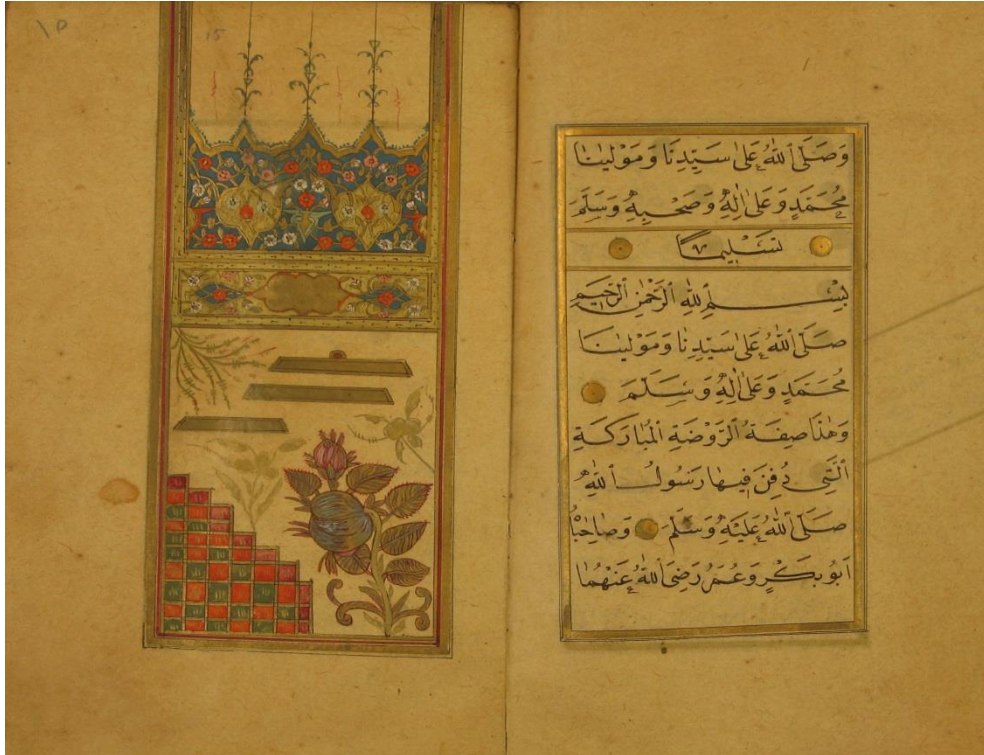 وَصَلَّى ٱللّٰهُ عَلٰى سَيِّدِنَا وَمَوْلٰينَا
مُحَمَّدٍ وَعَلٰى اٰلِهٖ وَصَحْبِهٖ وَسَلَّمَ
تَسْلِيمًا
بِسْمِ ٱللّٰهِ ٱلرَّحْمٰنِ ٱلرَّحِيمِ
صَلَّى ٱللّٰهُ عَلٰى سَيِّدِنَا وَمَوْلٰينَا
مُحَمَّدٍ وَعَلٰى اٰلِهٖ وَسَلَّمَ
وَهٰذَا صِفَةُ ٱلرَّوْضَةِ ٱلْمُبَارَكَةِ
ٱلَّتِي دُفِنَ فِيهَا رَسُولُ ٱللّٰهِ
صَلَّى ٱللّٰهُ عَلَيْهِ وَسَلَّمَ وَصَاحِبَاهُ
اَبُو بَكْرٍ وَعُمَرُ رَضِيَ ٱللّٰهُ عَنْهُمَا
١٥
15